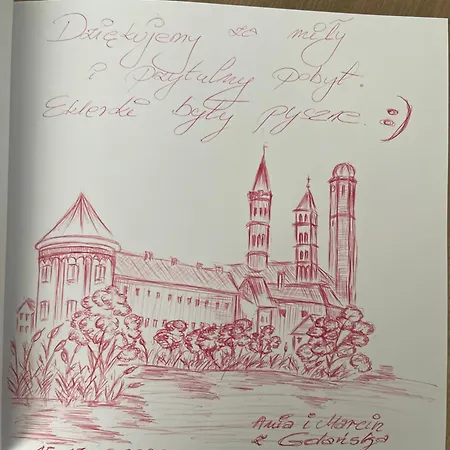 Dziękujemy za miły
i przytulny pobyt.
Eklerki były pyszne. :)
Ania i Marcin
z Gdańska